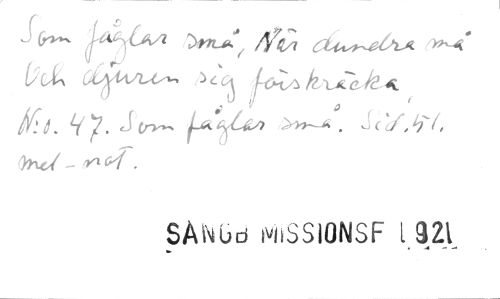 Som fåglar små, När dundra må
Och djuren sig förskräcka,
N:o. 47. Som fåglar små. Sid. 51.
mel-not.
SÅNGB MISSIONSF 1921